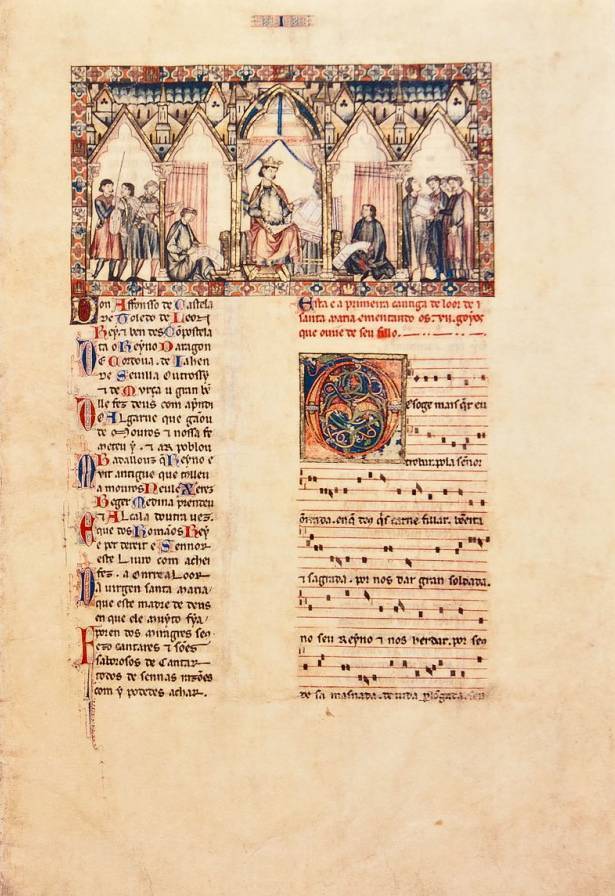 I
Don Affonsso de Castela
de Toledo de Leon
Rey ⁊ ben des Cõpostela
ta o Reyno Daragon
De Cordoua. de Iahen
de Seuilla Outrossy
⁊ de Murça u gran bẽ
lle fez deus com apndi
Do Algarue que gãou
de Mouros ⁊ nossa fe
meteu y. ⁊ ar poblou
Badallouz q̃ Reyno e
Muit antigue que tolleu
a mouros Neul e Xerez
Beger Medina prendeu
⁊ Alcala doutra uez.
Que dos Romãos Rey
e per dereit e Sennor
este Liuro com achei
fez. a Onrr e a Loor
Da uirgen santa maria
que este madre de deus
en que ele muyto fya
Poren dos miragres seus
fezo cantares ⁊ soes
saborosos de Cantar
todos de sennas razões
com y podedes achar.
Esta e a primeira cantiga de loor de
santa maria ementando os. vii. goyos
que ouue de seu fillo.
Des oge mais q̃r eu
trobar. pola señor
onrrada. en q̃ deus q̃s carne fillar. bẽeita
⁊ sagrada. por nos dar gran soldada.
no seu Reyno ⁊ nos herdar. por seus
de sa masnada. de uida plõgada. sen